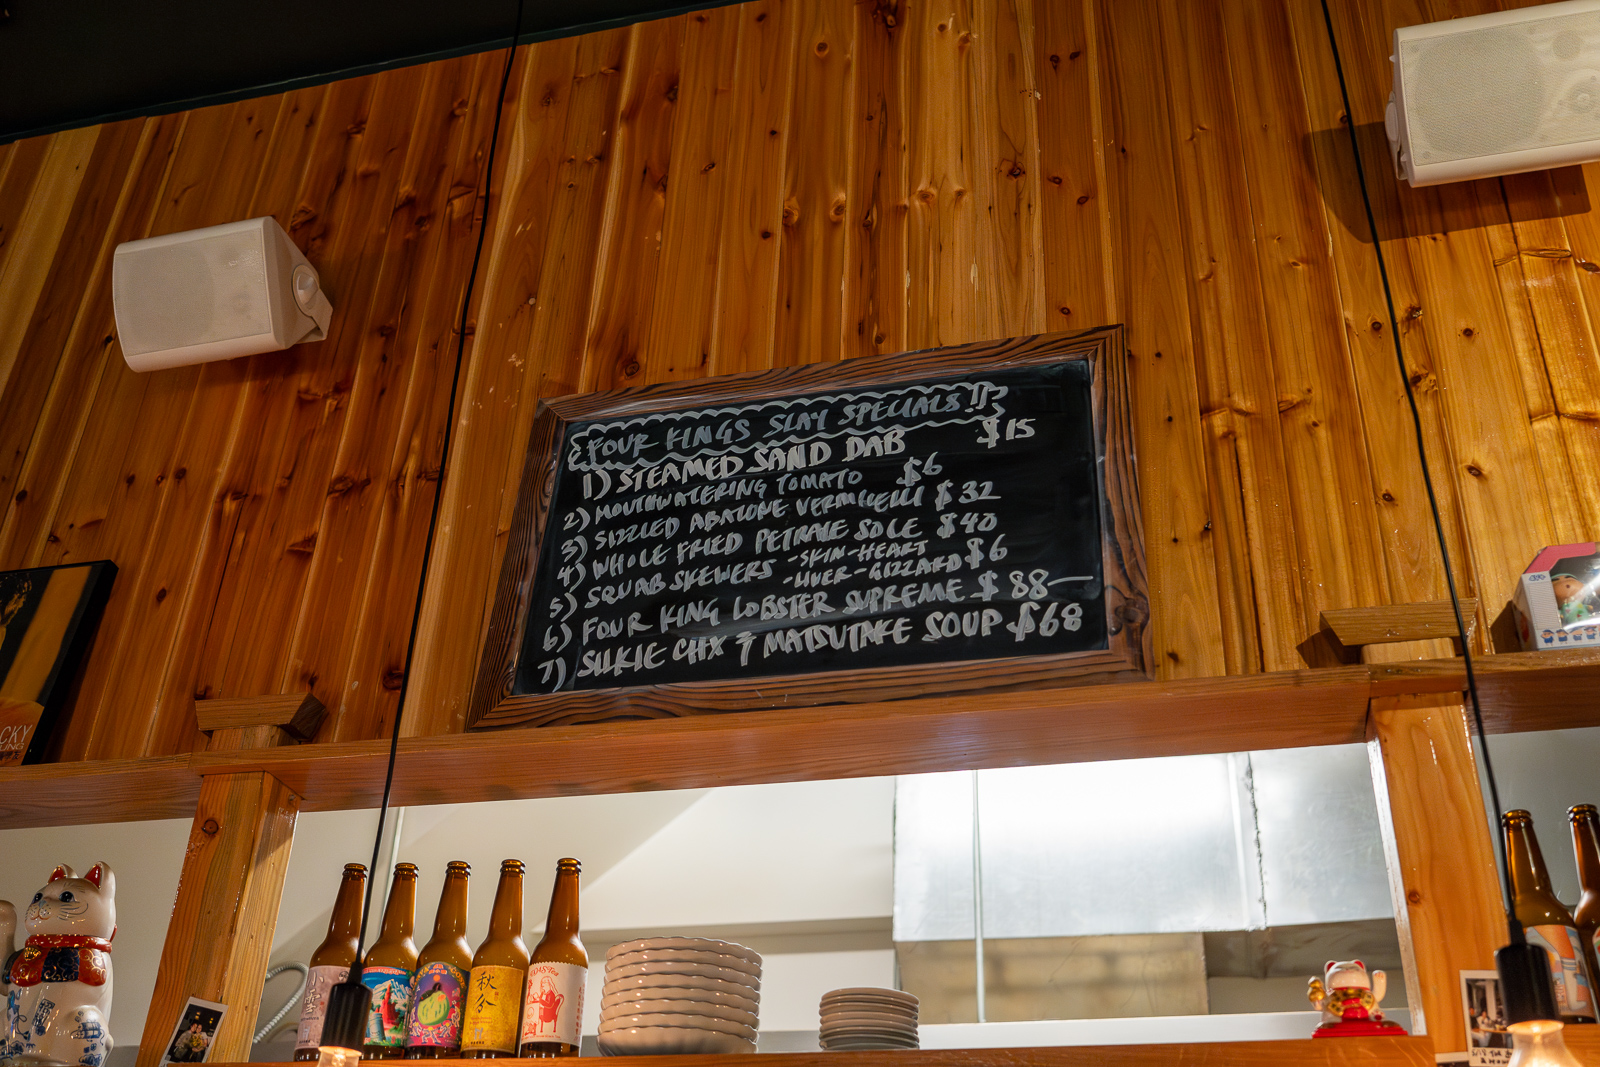 FOUR KINGS SLAY SPECIALS!!
1) STEAMED SAND DAB $15
2) MOUTHWATERING TOMATO $6
3) SIZZLED ABALONE VERMICELLI $32
4) WHOLE FRIED PETRALE SOLE $40
5) SQUAB SKEWERS -SKIN-HEART $6
-LIVER-GIZZARD
6) FOUR KING LOBSTER SUPREME $88—
7) SILKIE CHX & MATSUTAKE SOUP $68
CKY
小雪
秋分